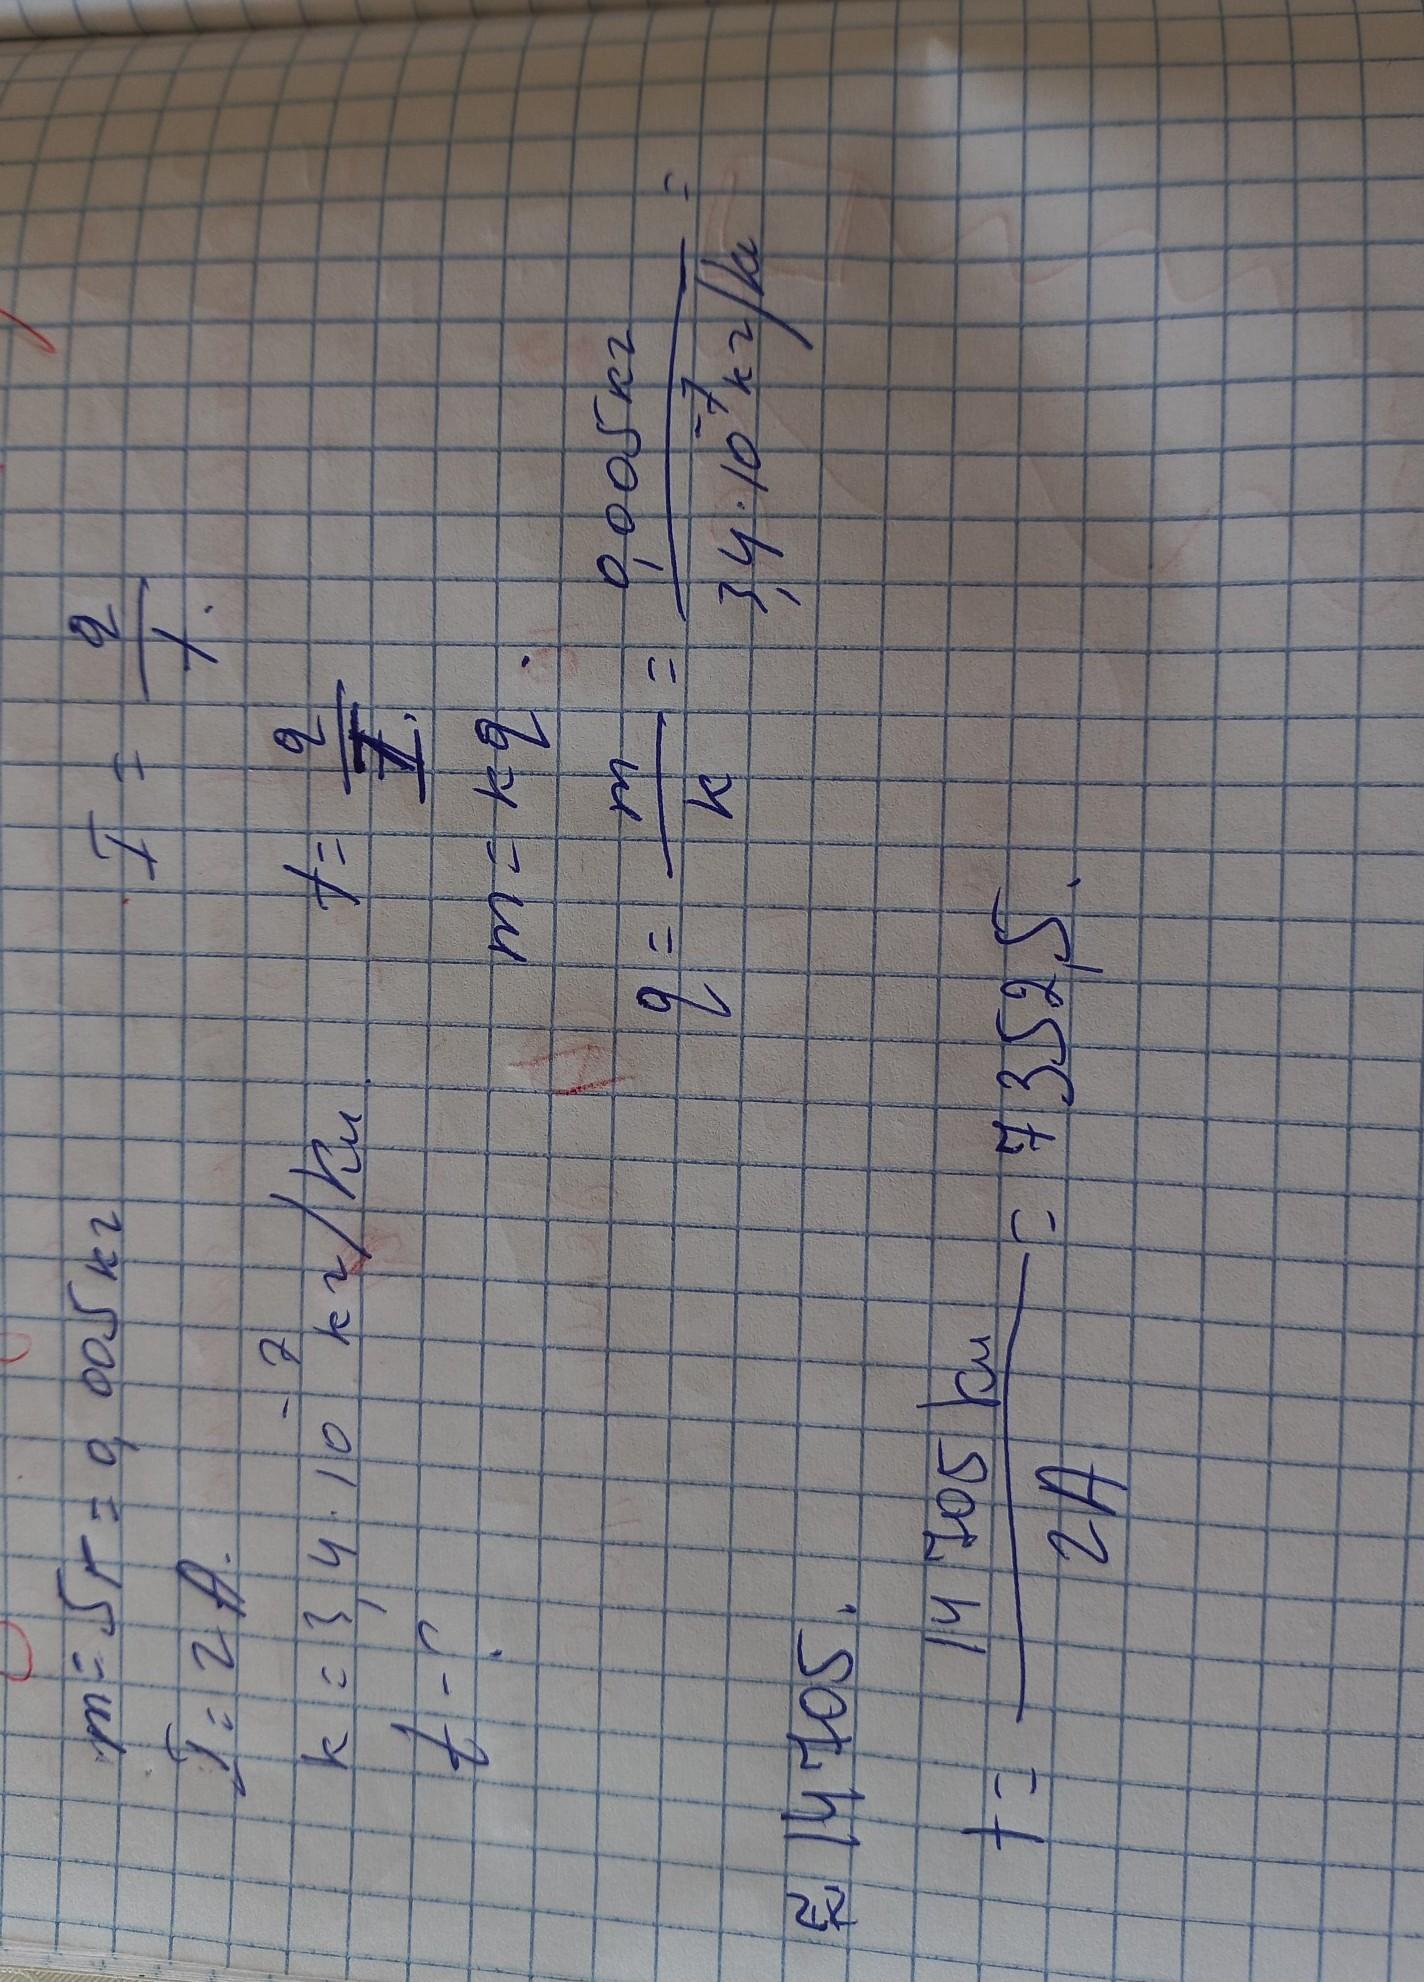 m = 5г = 0,005кг
I = q/t.
I = 2A.
k = 3,4 · 10⁻⁷ кг/Кл
t = q/I.
t - ?
m = kq.
q = m/k = 0,005кг / 3,4 · 10⁻⁷ кг/Кл =
≈ 14705.
t = 14705 Кл / 2A = 7352,5.